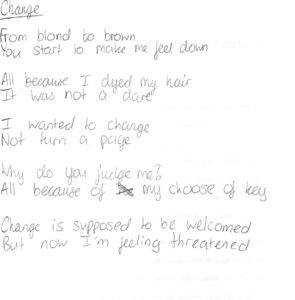 Change
From blond to brown
You start to make me feel down
All because I dyed my hair
It was not a dare
I wanted to change
Not turn a page
Why do you judge me?
All because of my choose of key
Change is supposed to be welcomed
But now I'm feeling threatened